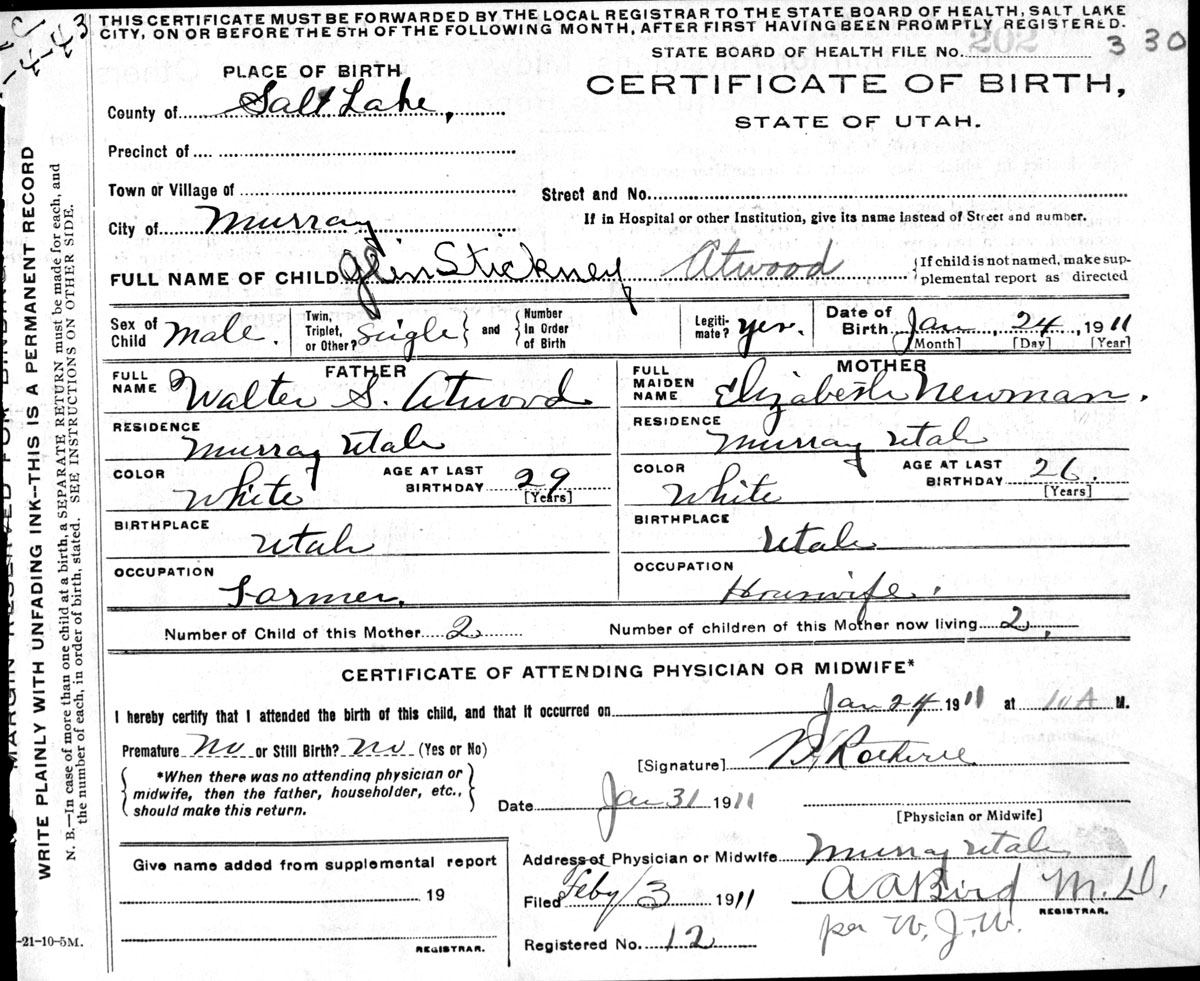 THIS CERTIFICATE MUST BE FORWARDED BY THE LOCAL REGISTRAR TO THE STATE BOARD OF HEALTH, SALT LAKE
CITY, ON OR BEFORE THE 5TH OF THE FOLLOWING MONTH, AFTER FIRST HAVING BEEN PROMPTLY REGISTERED.
STATE BOARD OF HEALTH FILE No. 202 330
PLACE OF BIRTH
CERTIFICATE OF BIRTH,
County of Salt Lake,
STATE OF UTAH.
Precinct of
Town or Village of
Street and No.
City of Murray
If in Hospital or other Institution, give its name instead of Street and number.
FULL NAME OF CHILD Stickney Atwood
{If child is not named, make sup-
plemental report as directed
Sex of Child Male.
Twin, Triplet, or Other? Single } and { Number In Order of Birth
Legiti-mate? yes.
Date of Birth Jan 24, 1911
[Month] [Day] [Year]
FATHER
FULL NAME Walter S. Atwood
RESIDENCE
Murray Utah
COLOR White
AGE AT LAST BIRTHDAY 29
[Years]
BIRTHPLACE
Utah
OCCUPATION
Farmer.
MOTHER
FULL MAIDEN NAME Elizabeth Newman.
RESIDENCE
Murray Utah
COLOR White
AGE AT LAST BIRTHDAY 26.
[Years]
BIRTHPLACE
Utah
OCCUPATION
Houswife.
Number of Child of this Mother 2
Number of children of this Mother now living 2.
CERTIFICATE OF ATTENDING PHYSICIAN OR MIDWIFE*
I hereby certify that I attended the birth of this child, and that it occurred on Jan 24 1911 at 10 A M.
Premature No or Still Birth? No (Yes or No)
[Signature]
{ *When there was no attending physician or
midwife, then the father, householder, etc.,
should make this return. }
Date Jan 31 1911
[Physician or Midwife]
Give name added from supplemental report
19
REGISTRAR.
Address of Physician or Midwife Murray Utah
Filed Feby/3 1911
A A Bird M.D.
REGISTRAR.
per W. J. W.
Registered No. 12
-21-10-5M.
WRITE PLAINLY WITH UNFADING INK—THIS IS A PERMANENT RECORD
N. B.—In case of more than one child at a birth, a SEPARATE RETURN must be made for each, and
the number of each, in order of birth, stated. SEE INSTRUCTIONS ON OTHER SIDE.